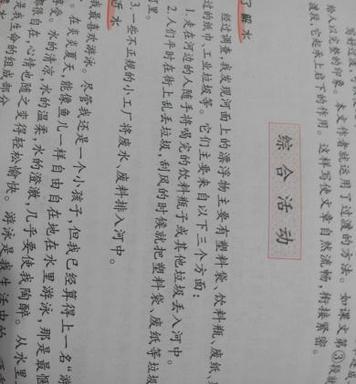 给人以完整的印象。本文作者就运用了过渡的方法。如课文第③段
渡段,它起承上启下的作用。这样写使文章自然流畅,衔接紧密。
综合活动
了解水
经过调查,我发现河面上的漂浮物主要有塑料袋、饮料瓶、废纸、
过的纸巾、工业垃圾等。它们主要来自以下三个方面:
1.走在河边的人随手将喝完的饮料瓶子或其他垃圾丢入河中。
2.人们平时在街上乱丢垃圾,刮风的时候就把塑料袋、废纸等垃圾
河里。
3.一些不正规的小工厂将废水、废料排入河中。
水
我最喜欢游泳。尽管我还是一个小孩子,但我已经算得上一名“游
。在炎炎夏天,能像鱼儿一样自由自在地在水里游泳,那是最惬
水的清凉,水的温柔,水的澄澈,几乎要使我陶醉。从水里
自在,心情也随之变得轻松愉快。游泳是我生活中的
是我生命的组成部分